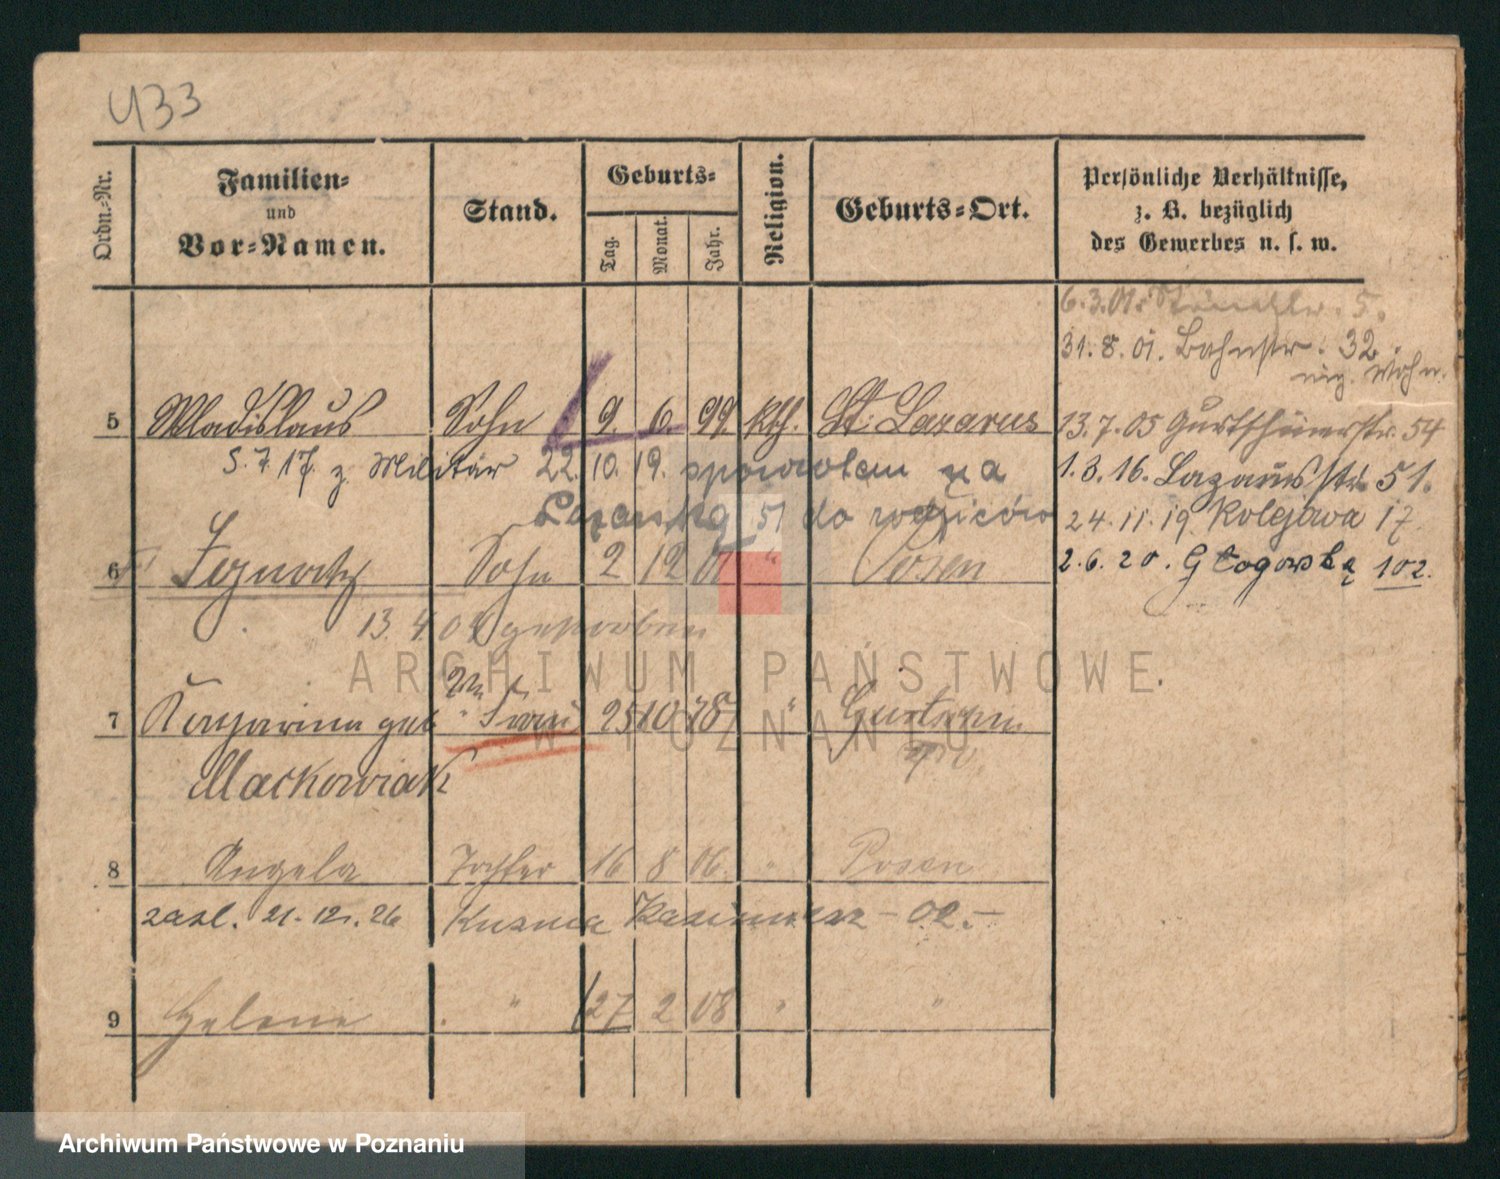 433
Ordn.-Nr.
Familien-
und
Vor-Namen.
Stand.
Geburts-
Tag.
Monat.
Jahr.
Religion.
Geburts-Ort.
Persönliche Verhältnisse,
z. B. bezüglich
des Gewerbes u. s. w.
6.3.01. 5.
31.8.01. Bahnstr. 32
Wohn.
5 Wladislaus Sohn 9. 6. 99. kth. St. Lazarus
13.7.05 Gurtschinerstr. 54
5.7.17. z. Militär 22.10.19. spowrotem na
1.3.16. Lazarusstr. 51.
Łazarską 51 do rodziców
24.11.19 Kolejowa 17
6 Ignatz Sohn 2 12 01 " Posen
2.6.20. Głogowska 102.
13. 4. 04 gestorben
7 Katharina geb. " Frau 25 10 78 " Gurtschin
Maćkowiak
8 Angela Tochter 16 8 06. " Posen
zaśl. 21.12.26 Kuźnia Kazimierz - 02.-
9 Helene " 27 2 08 " "
ARCHIWUM PAŃSTWOWE
W POZNANIU
Archiwum Państwowe w Poznaniu